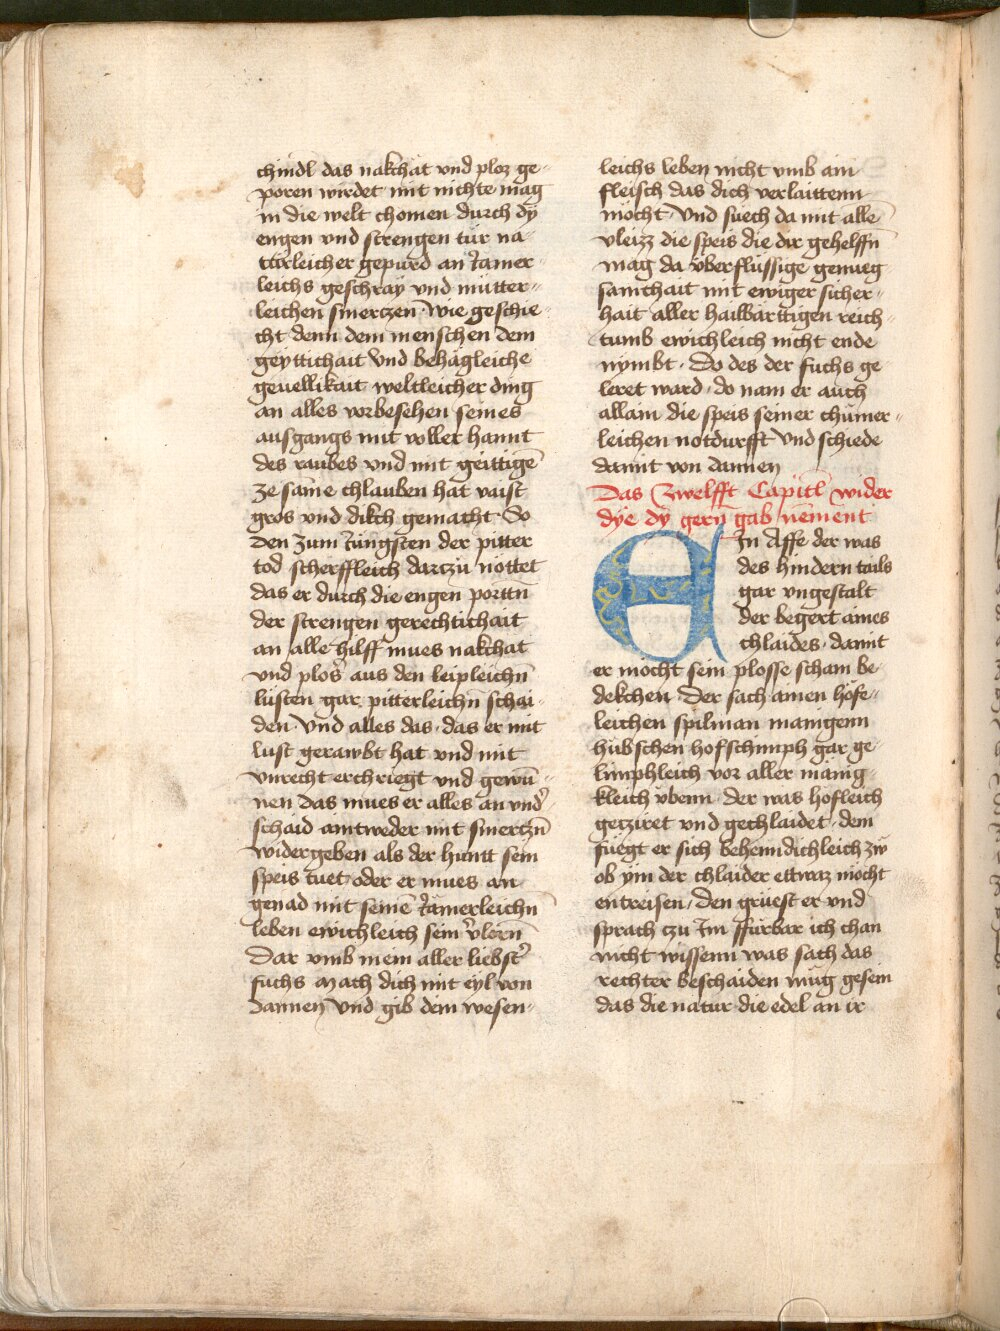 chindl das nakchait vnd ploz ge-
poren wirdet mit nichte mag
in die welt chomen durch dy
engen vnd strengen tür na-
türleicher gepürd an iamer-
leichs geschray vnd mutter-
leichen smerczen · wie geschie-
cht denn dem menschen dem
geyttichait vnd behägleiche
geuellikait weltleicher ding
an alles vorbesehen seines
ausgangs mit voller hannt
des raubes vnd mit geittigē
ze same chlauben hat vaist
gros vnd dikch gemacht · So
den zum iüngsten der pitter
tod scherffleich darczu nöttet
das er durch die engen porttn̄
der strengen gerechtichait
an alle hilff mues nakchat
vnd plos aus den leipleichn̄
lüsten gar pitterleichn̄ schai-
den · Vnd alles das · das er mit
lust gerawbt hat vnd mit
vnrecht erchriegt vnd gewū-
nen das mues er alles an vnd̕
schaid aintweder mit smerczn̄
widergeben als der huntt sein
speis tuet · oder er mues an
genad mit seinē iämerleichn̄
leben ewichleich sein v̕lorn̄
Dar vmb mein aller liebst̕
fuchs mach dich mit eyl von
dannen Vnd gib dein wesen-
leichs leben nicht vmb ain
fleisch das dich verlaittenn
möcht · Vnd suech da mit alle
vleizz die speis die dir gehelffn̄
mag da vberflüssige genueg-
samchait mit ewiger sicher-
hait aller hailbärttigen reich-
tumb ewichleich nicht ende
nymbt · Do des der fuchs ge
leret ward · do nam er auch
allain die speis seiner chümer-
leichen notdurfft Vnd schiede
damit von dannen
Das Zwelfft Capitl wider
dye dy gern̄ gab nement
EIn Affe der was
des hindern tails
gar vngestalt
der begert aines
chlaides · damit
er möcht sein plosse scham be-
dekchen · Der sach ainen höfe-
leichen spilman manigenn
hübschen hofschimph gar ge-
limphleich vor aller mänig-
kleich vbenn · der was hofleich
gecziret vnd gechlaidet · dem
fuegt er sich behenndichleich zw
ob ym der chlaider ettwaz möcht
entreisen · Den grüest er vnd
sprach czu im ffürbar ich chan
nicht wissenn was sach das
rechter beschaiden müg gesein
das die natur die edel an ir